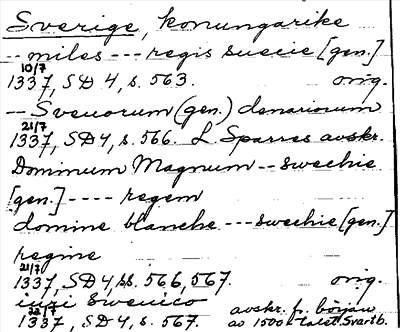 Sverige, konungarike
-- miles --- regis suecie [gen.]
10/7
1337, SD 4, s. 563. orig.
-- Sveuorum (gen.) denariorum
21/7
1337, SD 4, s. 566. L. Sparres avskr.
Dominum Magnum -- swechie
[gen.] ---- regem
domine blanche --- swechie [gen.]
regine
21/7
1337, SD 4, ss. 566, 567. orig.
iuri Swenico
22/7
1337, SD 4, s. 567. avskr. fr. början
av 1500-talet Svartb.